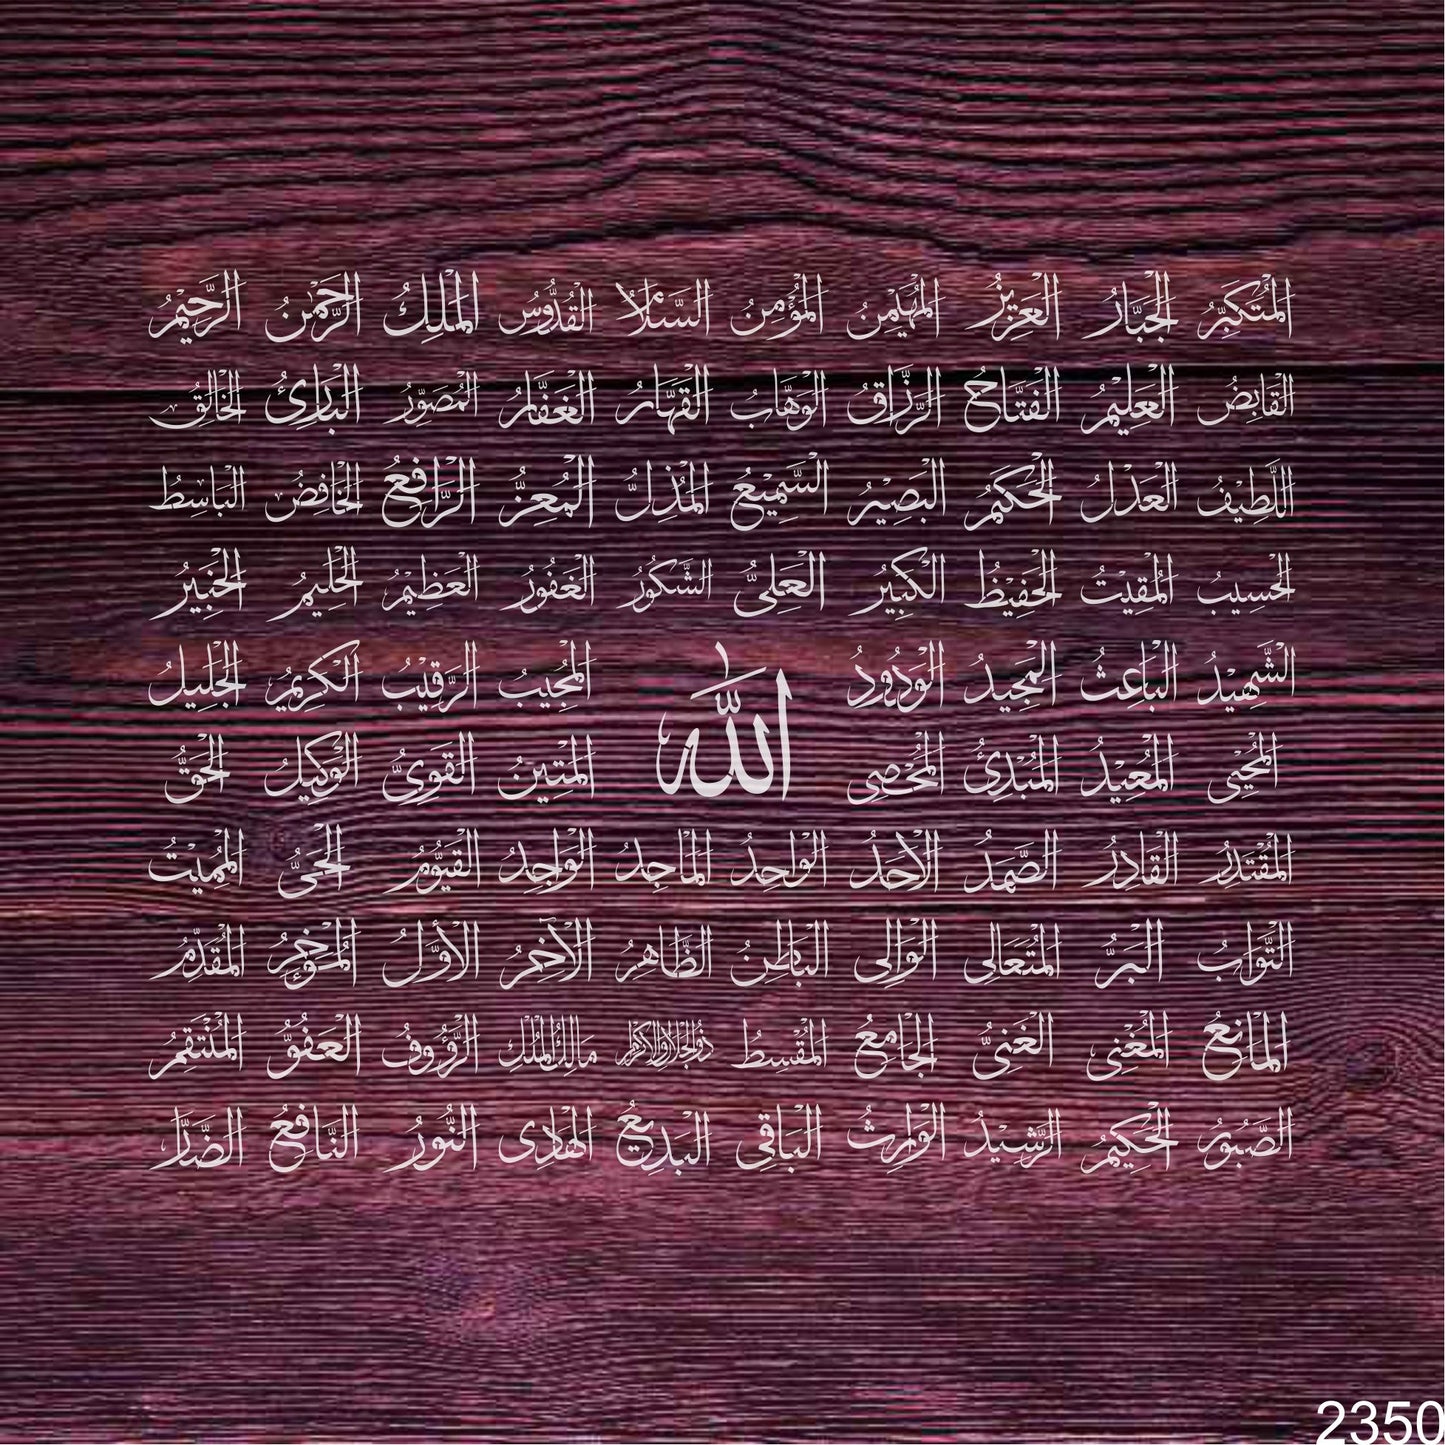 المُتَكَبِّرُ الجَبَّارُ العَزِيزُ المُهَيْمِنُ المُؤْمِنُ السَّلَامُ القُدُّوسُ المَلِكُ الرَّحْمٰنُ الرَّحِيْمُ
القَابِضُ العَلِيْمُ الفَتَّاحُ الرَّزَّاقُ الوَهَّابُ القَهَّارُ الغَفَّارُ المُصَوِّرُ البَارِئُ الخَالِقُ
اللَّطِيْفُ العَدْلُ الحَكَمُ البَصِيْرُ السَّمِيْعُ المُذِلُّ المُعِزُّ الرَّافِعُ الخَافِضُ البَاسِطُ
الحَسِيبُ المُقِيْتُ الحَفِيْظُ الكَبِيْرُ العَلِىُّ الشَّكُورُ الغَفُورُ العَظِيْمُ الحَلِيْمُ الخَبِيْرُ
الشَّهِيْدُ البَاعِثُ المَجِيدُ الوَدُودُ الله المُجِيبُ الرَّقِيْبُ الكَرِيْمُ الجَلِيلُ
المُحْيِى المُعِيْدُ المُبْدِئُ المُحْصِى المَتِيْنُ القَوِىُّ الوَكِيْلُ الحَقُّ
المُقْتَدِرُ القَادِرُ الصَّمَدُ الأَحَدُ الوَاحِدُ المَاجِدُ الوَاجِدُ القَيُّومُ الحَىُّ المُمِيْتُ
التَّوَابُ البَرُّ المُتَعَالِى الوَالِى البَاطِنُ الظَّاهِرُ الآخِرُ الأَوَّلُ المُؤَخِّرُ المُقَدِّمُ
المَانِعُ المُغْنِى الغَنِىُّ الجَامِعُ المُقْسِطُ ذُوالجَلَالِ وَالاِكْرَامِ مَالِكُ المُلْكِ الرَّؤُوفُ العَفُوُّ المُنْتَقِمُ
الصَّبُورُ الحَكِيْمُ الرَّشِيْدُ الوَارِثُ البَاقِى البَدِيْعُ الهَادِى النُّورُ النَّافِعُ الضَّارُّ
2350